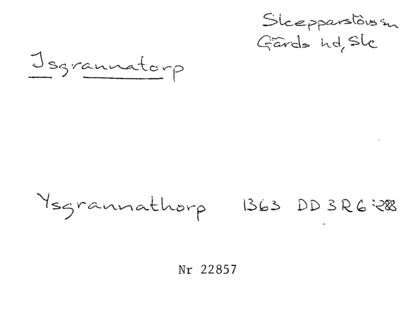 Skepparslövs sn
Gärds hd, Sk
Isgrannatorp
Ysgrannathorp 1363 DD 3 R 6
Nr 22857